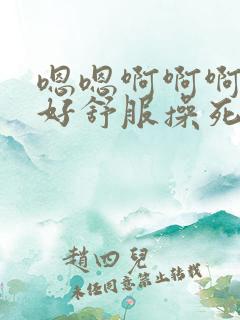 嗯嗯啊啊啊
好舒服操死
趙四兒
未经同意禁止转载